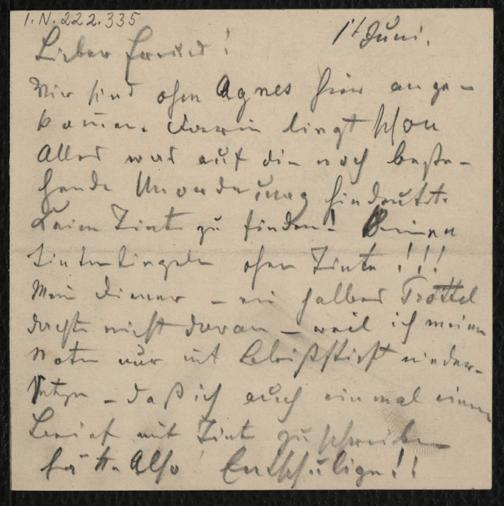 I.N. 222.335
1ᵗ Juni.
Lieber Freund!
Wir sind ohne Agnes hier ange-
kom̅en. Darin liegt schon
Alles was auf die noch beste-
hende Unordnung hindeutet.
Keine Tinte zu finden!
ohne Tinte!!!
Mein Diener – ein halber Trottel
dachte nicht daran – weil ich meine
Noten nur mit Bleistift nieder-
setze – daß ich auch einmal einen
Brief mit Tinte zu schreiben
hätte. Also Entschuldige!!